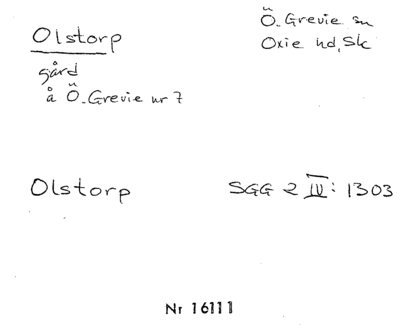 Olstorp
gård
å Ö. Grevie nr 7
Ö. Grevie sn
Oxie hd, Sk
Olstorp
SGG 2 IV: 1303
Nr 16111